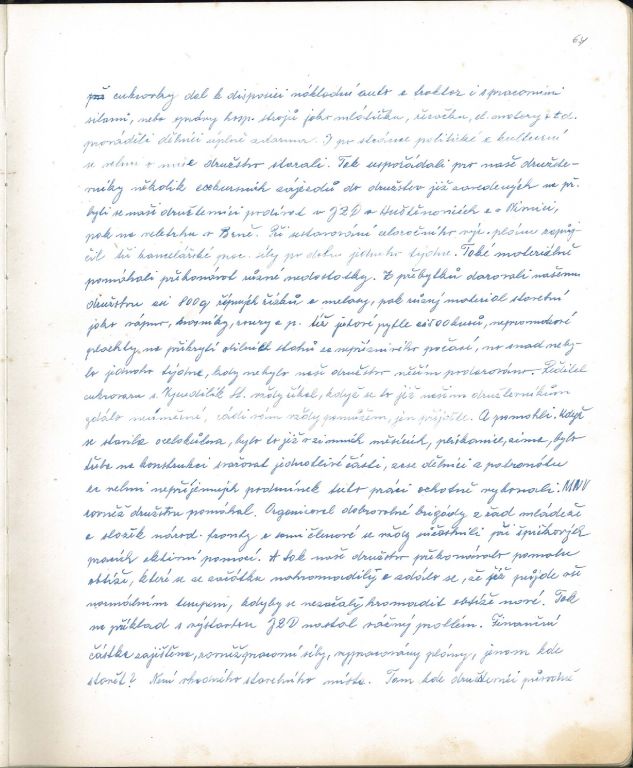 64
cukrovky dal k disposici nákladní auto a traktor i s pracovními
silami, nebo opravy hosp. strojů jako mlátička, řezačka, el. motory a t.d.
prováděli dělníci úplně zdarma. I po stránce politické a kulturní
se velmi o naše družstvo starali. Tak uspořádali pro naše družste-
vníky několik exkursních zájezdů do družstev již zavedených na př.
byli se naši družstevníci podívat v JZD v Huštěnovicích a v Nivnici,
pak na veletrhu v Brně. Při sestavování celoročního výr. plánu zapůj-
čil tři kancelářské prac. síly po dobu jednoho týdne. Také materiálně
pomáhali překonávat různé nedostatky. Z přebytků darovali našemu
družstvu asi 800 q řepných řízků a melasy, pak různý materiál stavební
jako vápno, trámky, roury a p. též jutové pytle asi 500 kusů, nepromokavé
plachty, na přikrytí obilních stohů za nepříznivého počasí, no snad neby-
lo jednoho týdne, kdy nebylo naše družstvo něčím podarováno. Ředitel
cukrovaru s. Vyoudílek St. vždy říkal, když se to již našim družstevníkům
zdálo neúměrné, rádi vám vždy pomůžem, jen přijďte. A pomohli. Když
se stavila ocelokůlna, bylo to již v zimních měsících, plískanice, zima, bylo
třeba na konstrukci svařovat jednotlivé části, zase dělníci z patronátu
za velmi nepříjemných podmínek tuto práci ochotně vykonali. MNV
rovněž družstvu pomáhal. Organisoval dobrovolné brigády z řad mládeže
a složek národ. fronty a sami členové se vždy zúčastnili při špičkových
pracích aktivní pomocí. A tak naše družstvo překonávalo pomalu
obtíže, které se ze začátku nahromadily a zdálo se, že již půjde vše
normálním tempem, kdyby se nezačaly hromadit obtíže nové. Tak
na příklad s výstavbou JZD nastal vážný problém. Finanční
částka zajištěna, rovněž pracovní síly, vypracovány plány, jenom kde
stavět? Není vhodného stavebního místa. Tam kde družstevníci původně